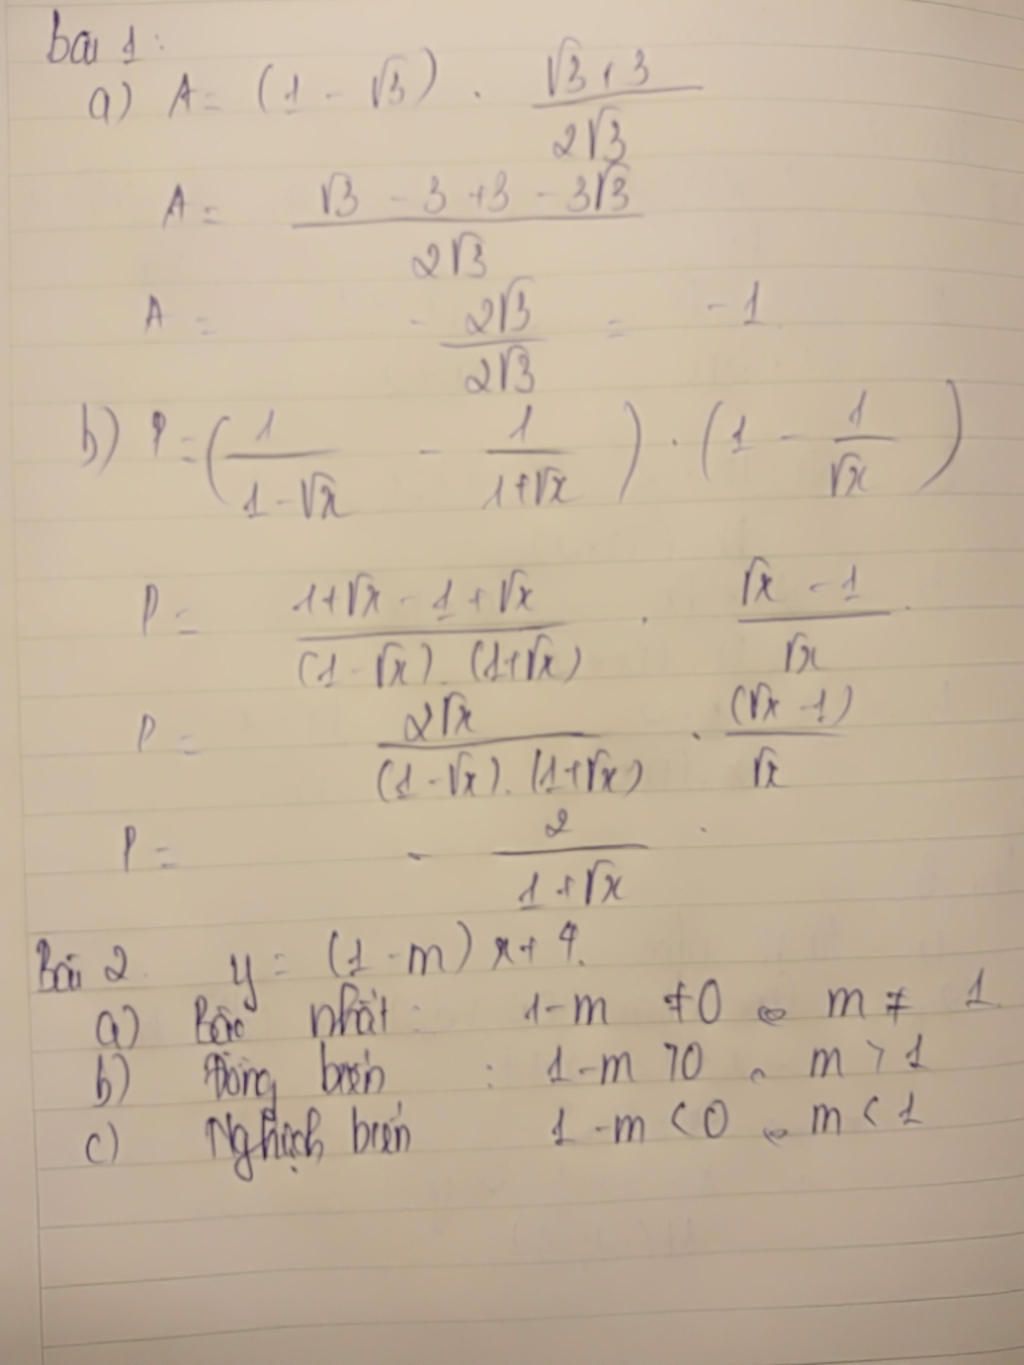 bài 1:
a) A = (1 - √3) . (√3 + 3) / (2√3)
A = (√3 - 3 + 3 - 3√3) / (2√3)
A = - (2√3) / (2√3) = -1
b) P = (1 / (1 - √x) - 1 / (1 + √x)) . (1 - 1 / √x)
P = (1 + √x - 1 + √x) / ((1 - √x) . (1 + √x)) . (√x - 1) / √x
P = 2√x / ((1 - √x) . (1 + √x)) . (√x - 1) / √x
P = - 2 / (1 + √x)
Bài 2. y = (1 - m) x + 4.
a) nhất: 1 - m ≠ 0 m ≠ 1
b) Đồng biến : 1 - m > 0 m > 1
c) Nghịch biến 1 - m < 0 m < 1